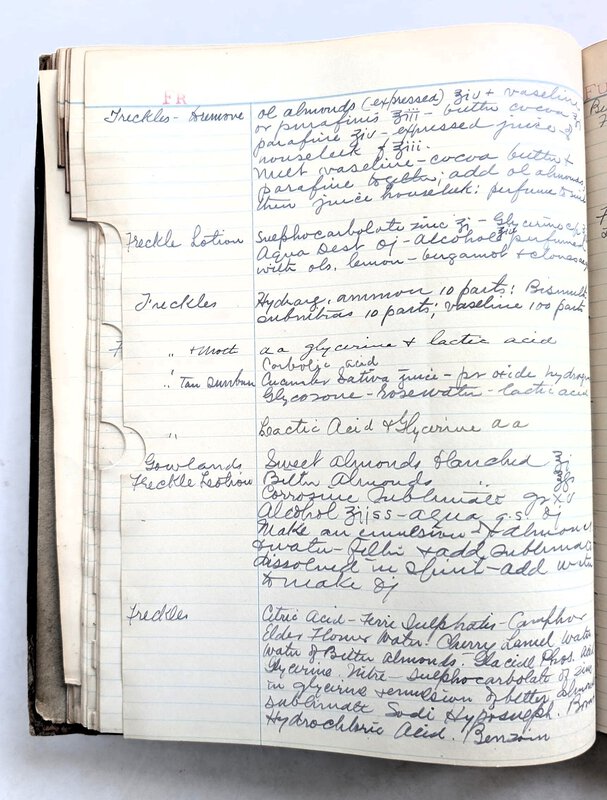 FR
Freckles - Remove ol almonds (expressed) ʒiv + vaseline
or parafinis ʒiii - butter cocoa
parafine ʒiv - expressed juice of
houseleek ʒiii.
Melt vaseline - cocoa butter +
parafine together; add ol almonds;
then juice houseleek: perfume to
Freckle Lotion Sulphocarbolate zinc ʒi - Glycerine
Aqua Dest Oj - Alcohol ʒiv perfumed
with ols. lemon - bergamot + cloves
Freckles Hydrarg. ammon 10 parts: Bismuth
subnitras 10 parts; vaseline 100 parts
F " + Moth aa glycerine + lactic acid
Carbolic acid
" Tan Sunburn Cucumber Sativa juice - per oxide hydrogen
Glycozone - Rosewater - lactic acid
" Lactic Acid & Glycerine aa
Gowlands Sweet Almonds blanched ʒj
Freckle Lotion Bitter Almonds "
Corrosive Sublimate gr XV
Alcohol ʒijss - aqua q.s. Oj
Make an emulsion almonds
+ water - filter + add sublimate
dissolved in spirit - add water
to make Oj
Freckles Citric Acid - Ferri Sulphatis - Camphor
Elder Flower Water. Cherry Laurel Water
Water of Bitter almonds. Glacial Phos. Acid
Glycerine. Nitre - Sulphocarbolate of zinc
in glycerine + emulsion of bitter almonds
sublimate Sodi Hyposulph.
Hydrochloric Acid. Benzoin
FU